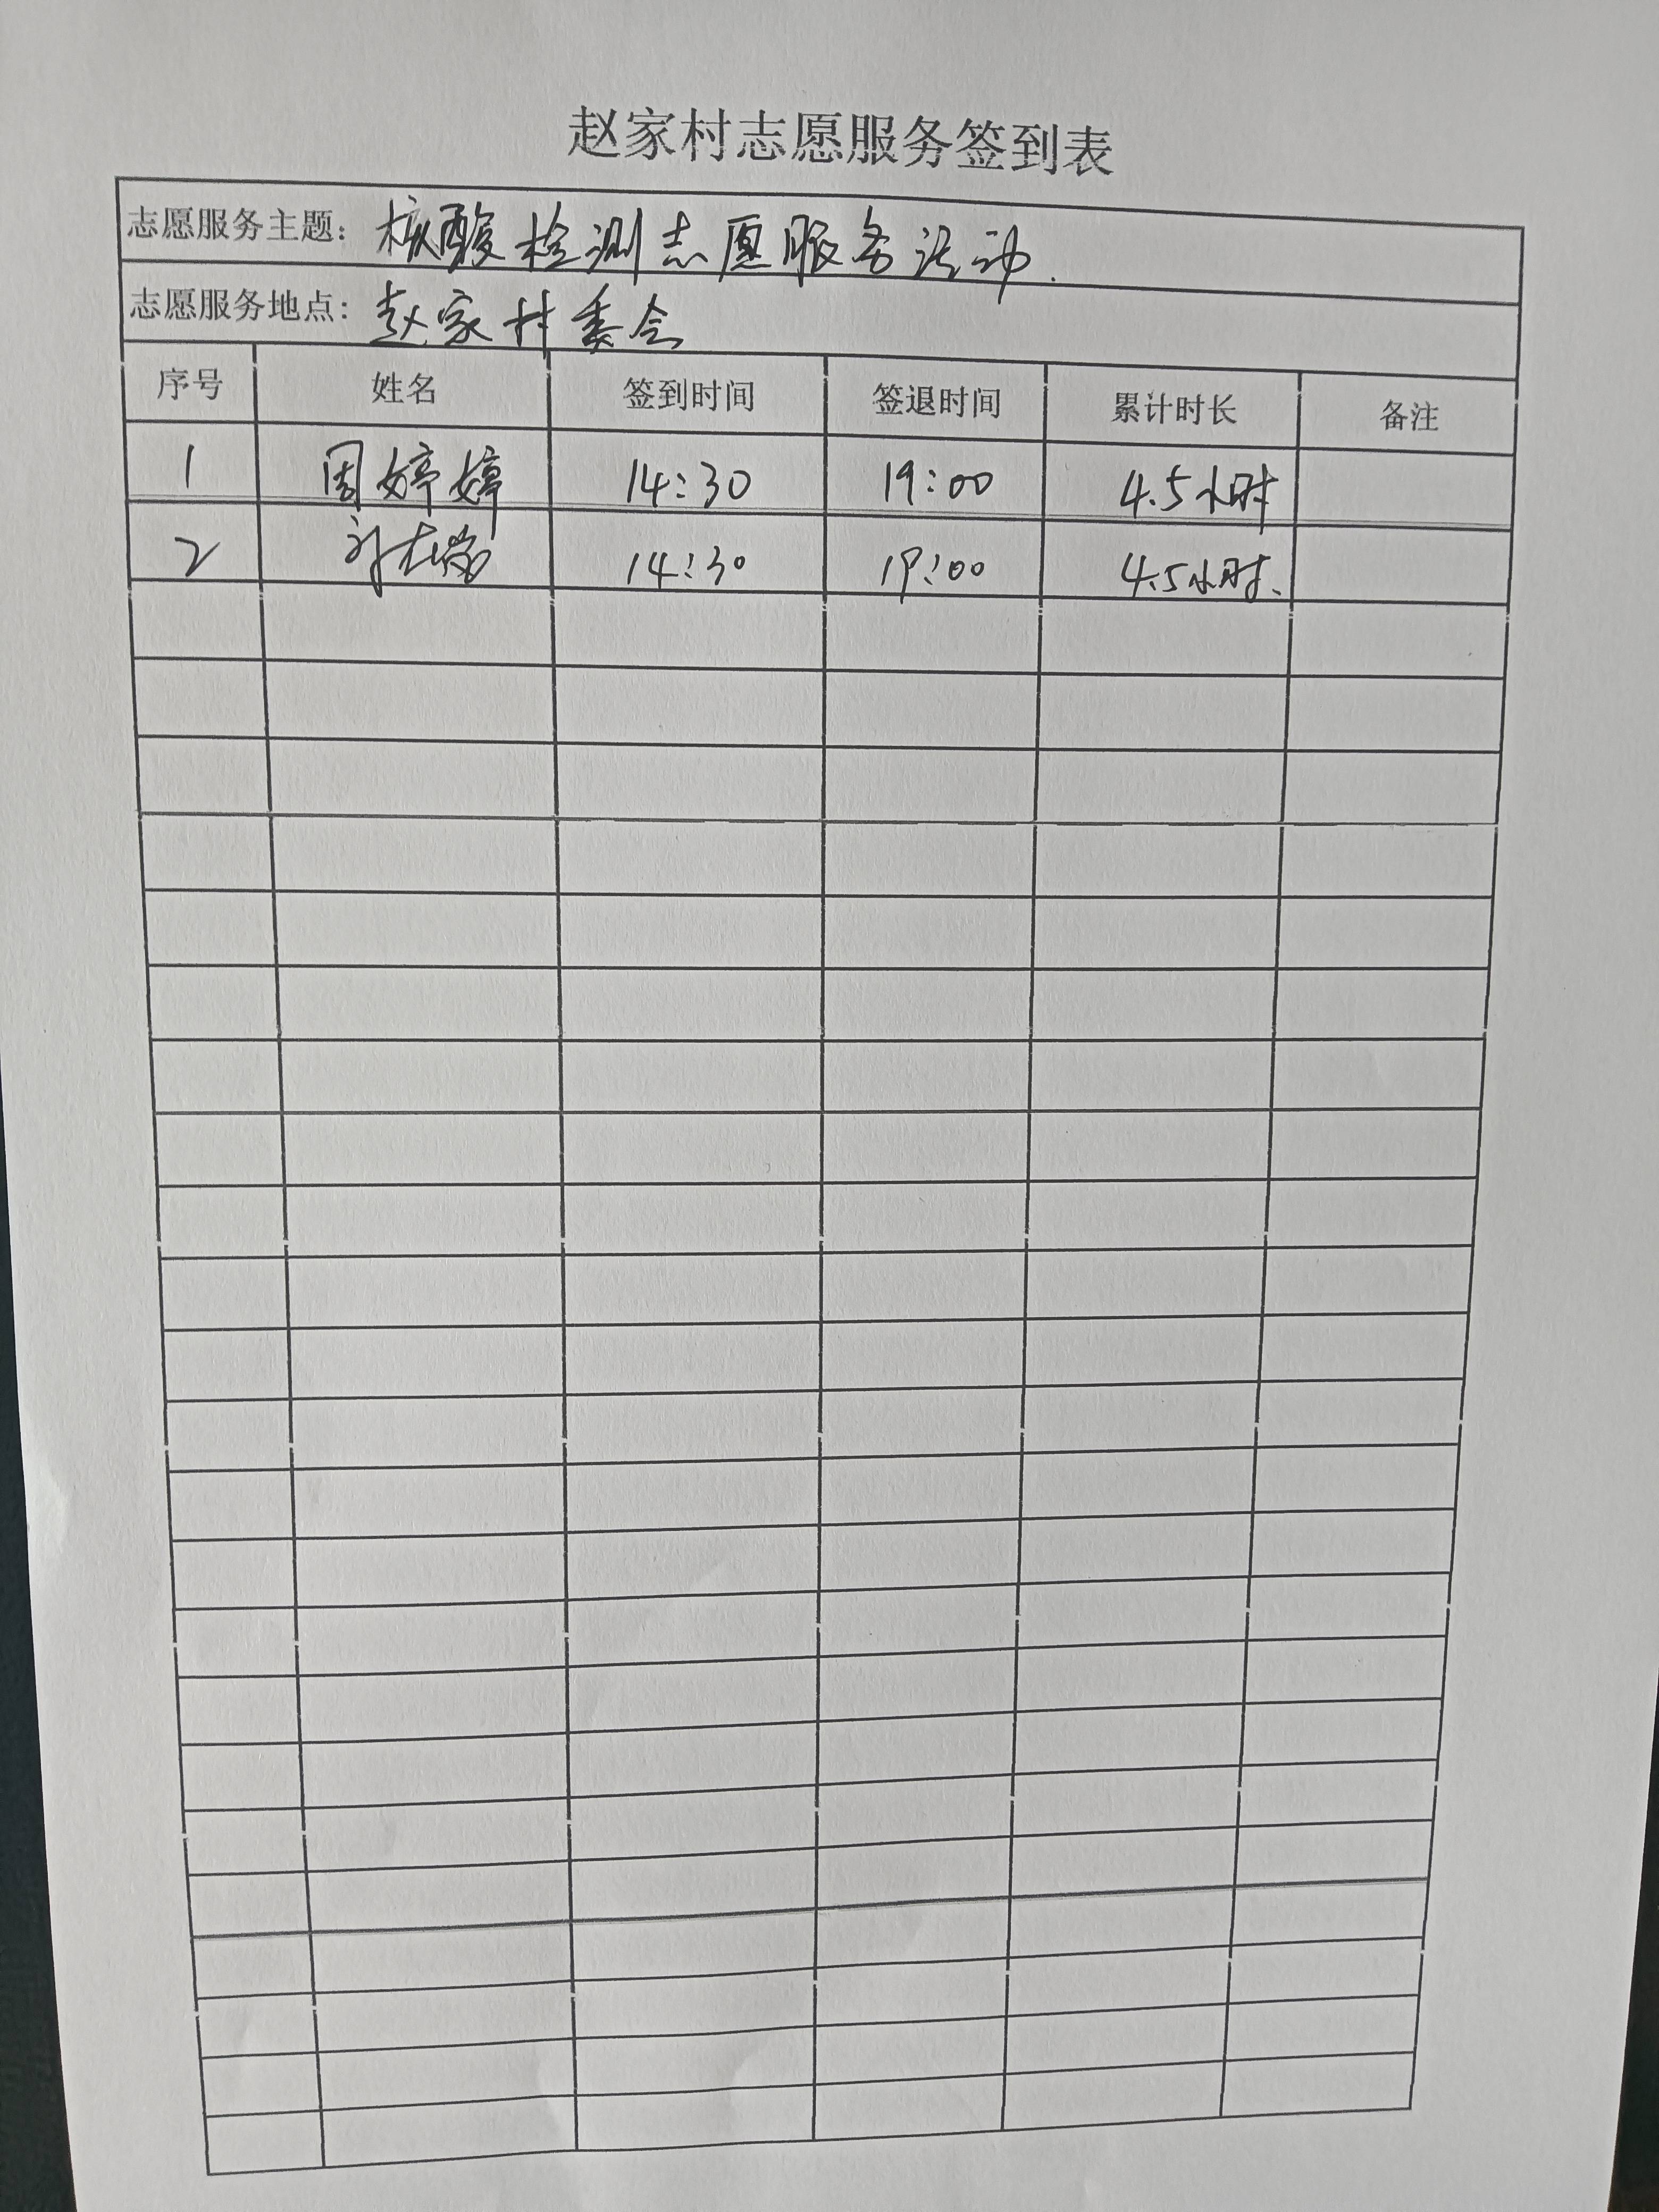 赵家村志愿服务签到表
志愿服务主题：核酸检测志愿服务活动.
志愿服务地点：赵家村委会
序号 姓名 签到时间 签退时间 累计时长 备注
1 周婷婷 14:30 19:00 4.5小时
2 14:30 19:00 4.5小时.